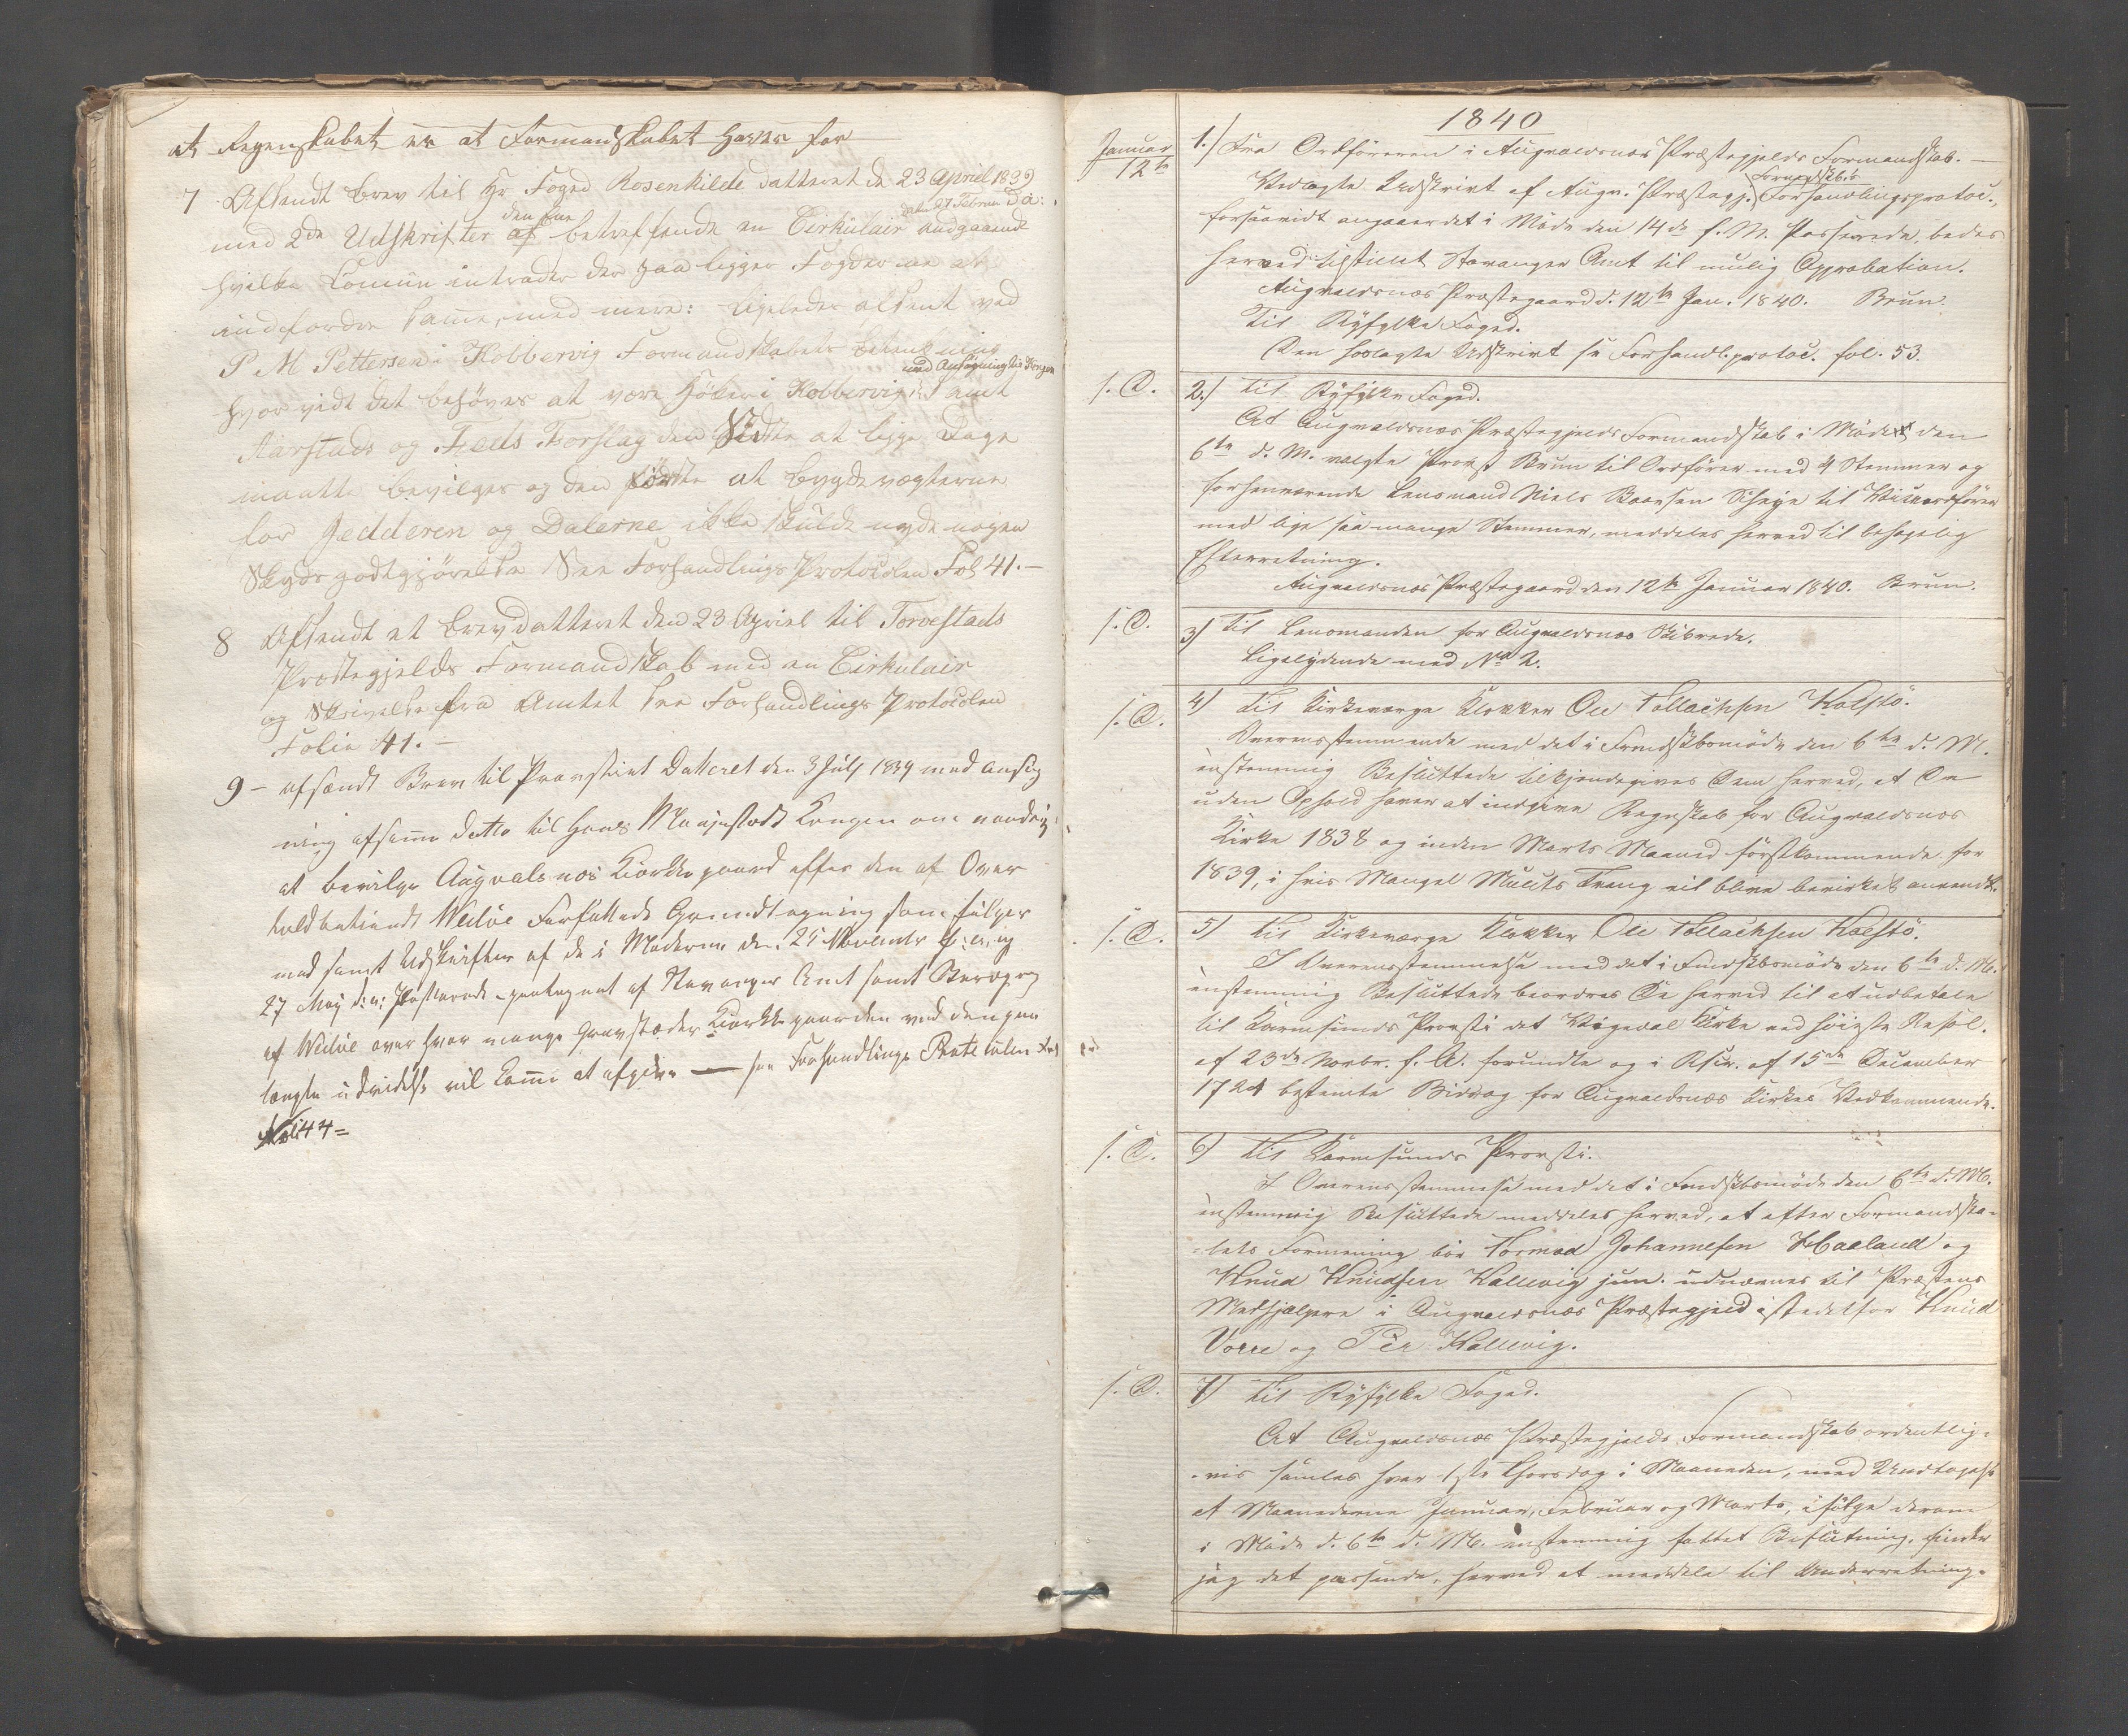 at Regenskabet er at Formandskabet haver for
7 Afsendt brev til Hr Foged Rosenkilde datteret de 23 Apriel 1839
med 2de Udskrifter af den ene betreffende en Cirkulair dat: 27 Februar d a: andgaaende
hvilke Comün intrader der paa ligger Fogderne at
indfordre samme, med mere: ligeledes afsent ved
P M Pettersen i Kobbervig Formandskabets betenkning
hvor vidt det behøves at være Høker i Kobbervig med Ansøgning til Kongen samt
Aarstads og Fæds Forslag den Sidste at ligge Dage
maatte bevilges og den første at bygdevægterne
for Jedderen og Dalerne ikke skulde nyde nogen
Skyds godtgjørelse See Forhandlings Protocolen Fol 41.—
8 Afsendt et brev datteret den 23 Apriel til Torvestads
Præstegjelds Formandskab med en Cirkulair
og Skrivelse fra Amtet see Forhandlings Protocolen
Folie 41.—
9 – afsendt Brev til Provstiet Dateret den 3 July 1839 med ansøg
ning af samme Datto til Hans Maajestæd Kongen om naadigst
at bevilge Augvalsnæs Kierkegaard efter den af Over
holdbetient Weiløe Forfattede Grundtegning som følger
med samt Udskrifter af de i Møderne den 25 November f: a: og
27 May d: a: Passerede - paategnet af Stavanger Amt samt
af Weiløe over hvor mange Gravstæder Kierkegaarden ved den paa
tængte udvidelse vil komme at afgive — see Forhandlings Protocolen
Foli 44 =
1840
Januar
12te
1.) Fra Ordføreren i Augvaldsnæs Præstegjelds Formandskab. —
Vedlagte Udskrivt af Augv. Præstegj. Formandskabs Forhandlingsprotoc.,
forsaavidt angaaer det i Møde den 14de f. M. Passerede, bedes
herved tilstillet Stavanger Amt til mulig Approbation.
Augvaldsnæs Præstegaard d. 12te Jan. 1840. Brun.
Til Ryfylke Foged.
Den hoslagte Udskrivt se Forhandl.protoc. fol. 53.
s. D. 2.) Til Ryfylke Foged.
At Augvaldsnæs Præstegjelds Formandskab i Møde den
6te d. M. valgte Provst Brun til Ordfører med 4 Stemmer og
forhenværende Lensmand Niels Baarsen Scheje til Viceordfører
med lige saa mange Stemmer, meddeles herved til behagelig
Efterretning.
Augvaldsnæs Præstegaard den 12te Januar 1840. Brun.
s. D. 3) Til Lensmanden for Augvaldsnæs Skibrede.
Ligelydende med No 2.
s. D. 4) Til Kirkeværge Klokker Ole Tollachsen Kolstö.
Overensstemmende med det i Frmdskbsmöde den 6te d. M.
enstemmig Besluttede tilkjendegives Dem herved, at De
uden Ophold haver at indgive Regnskab for Augvaldsnæs
Kirke 1838 og inden Marts Maaned førstkommende for
1839, i hvis Mangel Mulcts Tvang vil blive bevirket anvendt.
s. D. 5) Til Kirkeværge Klokker Ole Tollachsen Kolstö.
I Overensstemmelse med det i Fmdskbsmöde den 6te d. M.
enstemmig Besluttede beordres De herved til at udbetale
til Karmsunds Provsti det Vigedal Kirke ved høieste Resol.
af 23de Novbr. f. A. forundte og i Rscr. af 15de December
1724 bestemte Bidrag for Augvaldsnæs Kirkes Vedkommende.
s. D. 6) Til Karmsunds Provsti.
I Overensstemmelse med det i Fmdskbsmöde den 6te d. M.
enstemmig Besluttede meddeles herved, at efter Formandska-
bets Formening bør Tormod Johannesen Haaland og
Knud Knudsen Kallevig jun. udnævnes til Præstens
Medhjælpere i Augvaldsnæs Præstegjeld istedetfor Knud
Vorre og Per Kallevig.
s. D. 7) Til Ryfylke Foged.
At Augvaldsnæs Præstegjelds Formandskab ordentlig-
vis samles hver 1ste Thorsdag i Maaneden, med Undtagelse
af Maanederne Januar, Februar og Marts, ifølge derom
i Møde d. 6te d. M. enstemmig fattet Beslutning, finder
jeg det passende, herved at meddele til Underretning.